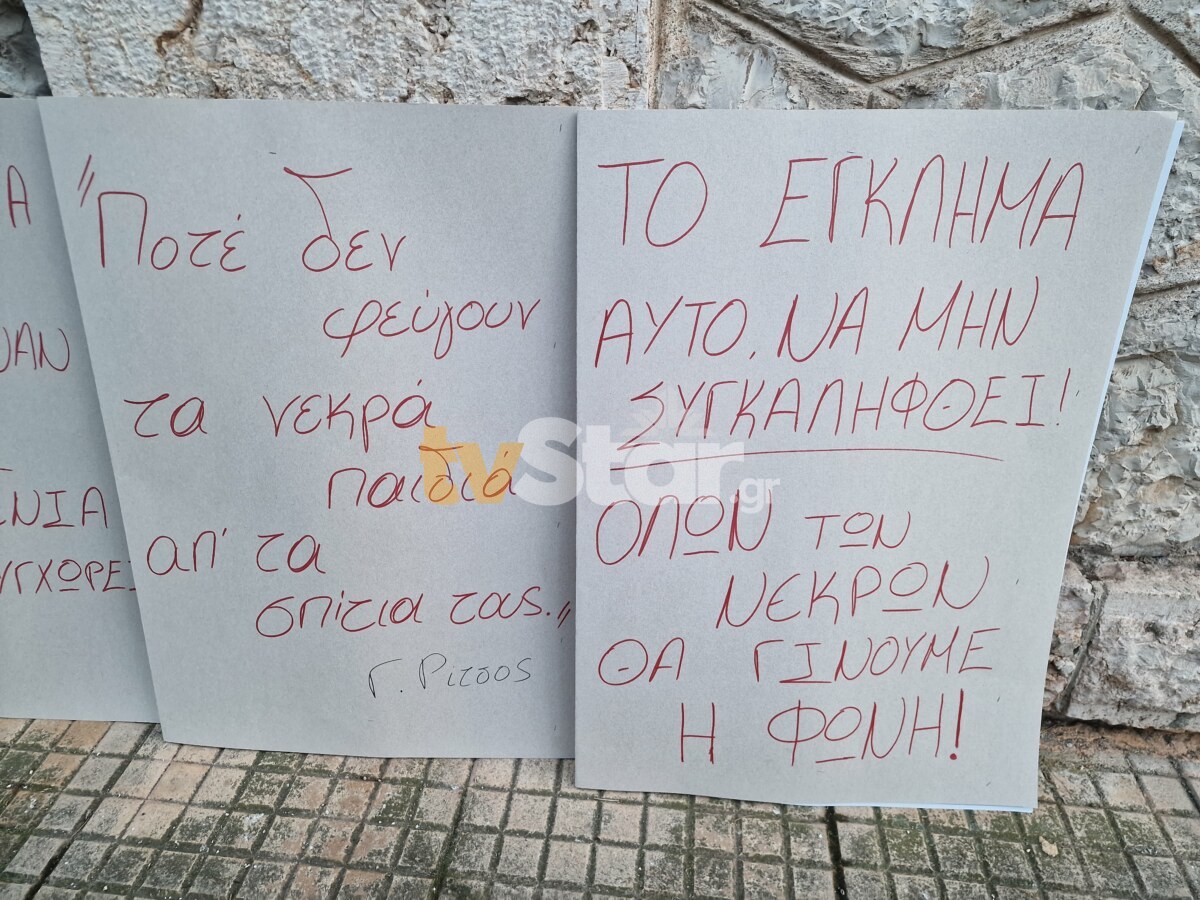 Α
ΝΙΑ
"Ποτέ δεν
φεύγουν
τα νεκρά
παιδιά
απ' τα
σπίτια τους."
Γ. Ρίτσος
ΤΟ ΕΓΚΛΗΜΑ
ΑΥΤΟ, ΝΑ ΜΗΝ
ΣΥΓΚΑΛΗΦΘΕΙ!
ΟΛΩΝ ΤΩΝ
ΝΕΚΡΩΝ
ΘΑ ΓΙΝΟΥΜΕ
Η ΦΩΝΗ!
tvStar.gr